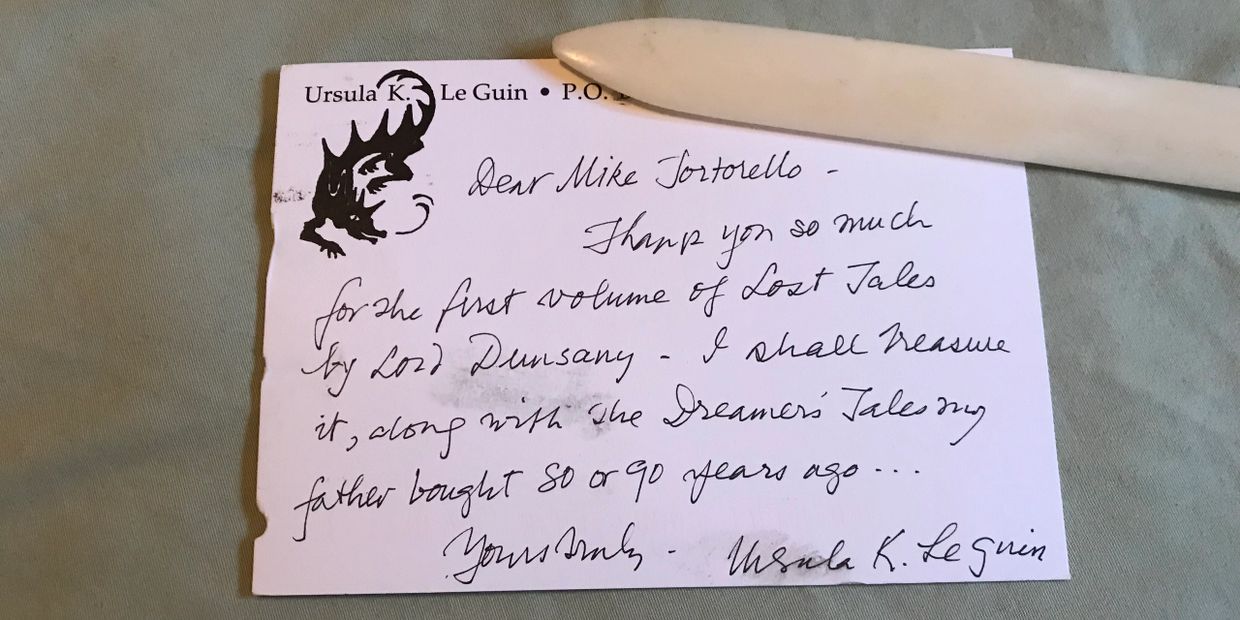 Ursula K. Le Guin • P.O.
Dear Mike Tortorello -
Thank you so much
for the first volume of Lost Tales
by Lord Dunsany - I shall treasure
it, along with the Dreamer's Tales my
father bought 80 or 90 years ago...
Yours truly - Ursula K. Le Guin